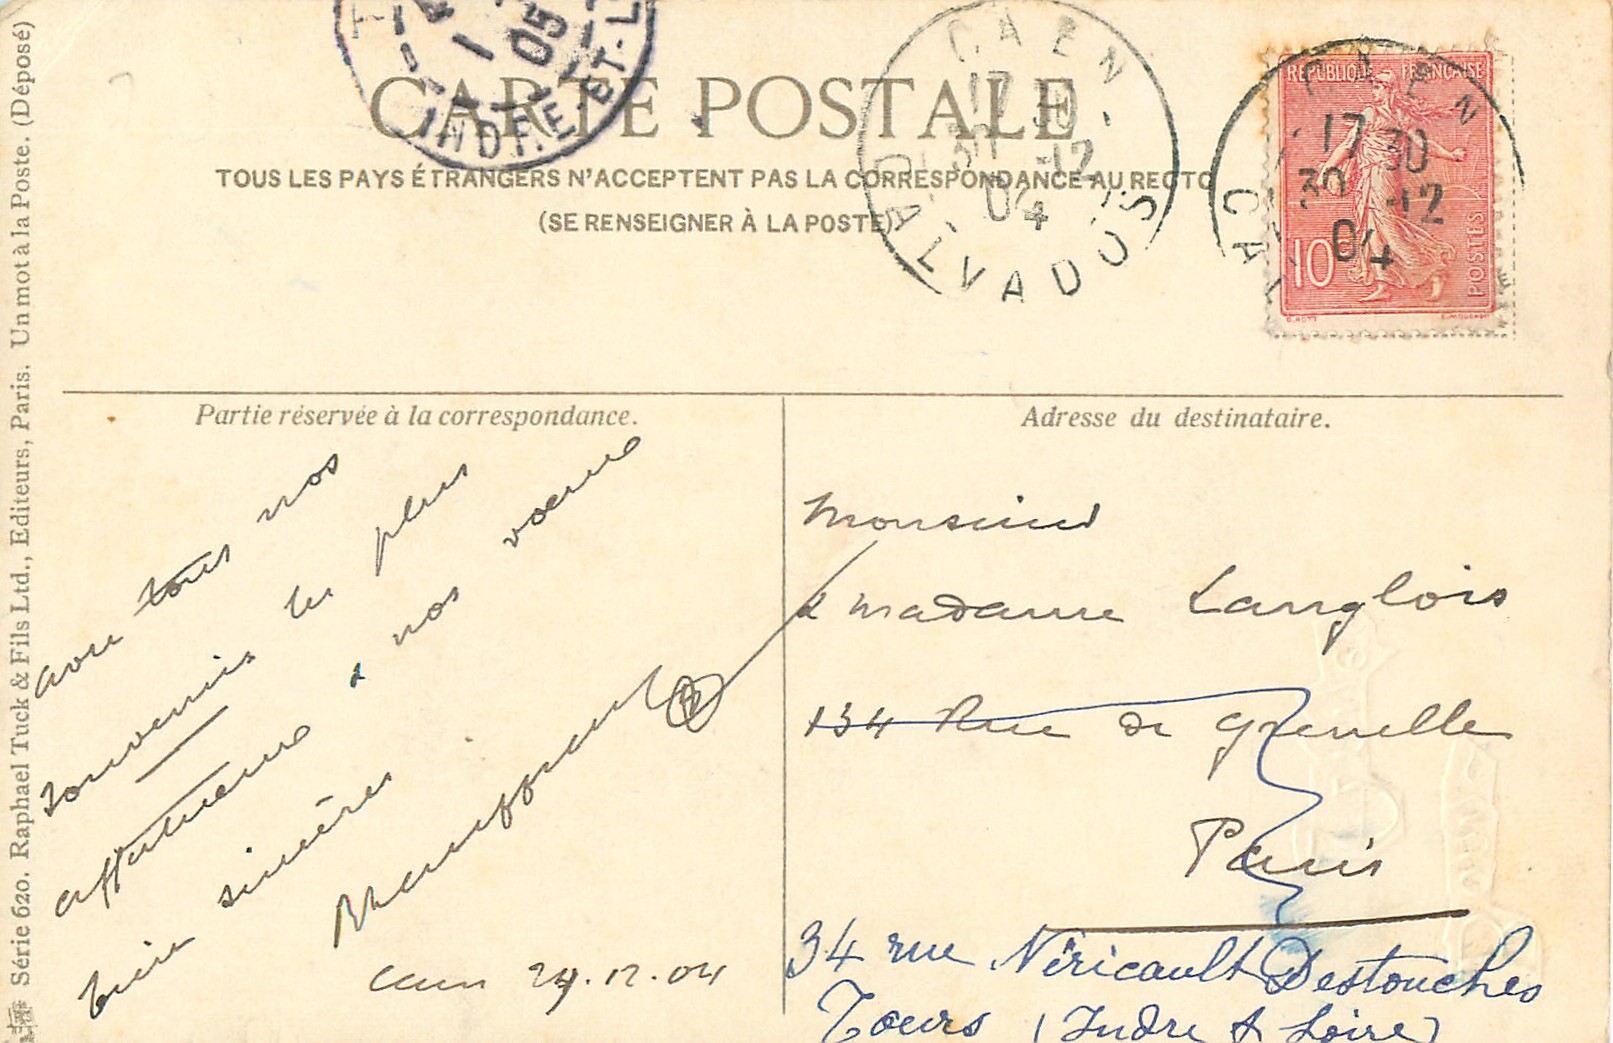 CARTE POSTALE
TOUS LES PAYS ÉTRANGERS N'ACCEPTENT PAS LA CORRESPONDANCE AU RECTO
(SE RENSEIGNER À LA POSTE)
CAEN
17 30
30 -12
04
CALVADOS
INDRE-ET-L
05
RÉPUBLIQUE FRANÇAISE
10c
POSTES
CAEN
17 30
30 -12
04
CAL
Série 620. Raphael Tuck & Fils Ltd., Editeurs, Paris. Un mot à la Poste. (Déposé)
Partie réservée à la correspondance.
avec tous nos
souvenirs les plus
affectueux & nos vœux
bien sincères
Caen 29.12.04
Adresse du destinataire.
Monsieur
& Madame Langlois
134 Rue de Grenelle
Paris
34 rue Néricault Destouches
Tours (Indre & Loire)